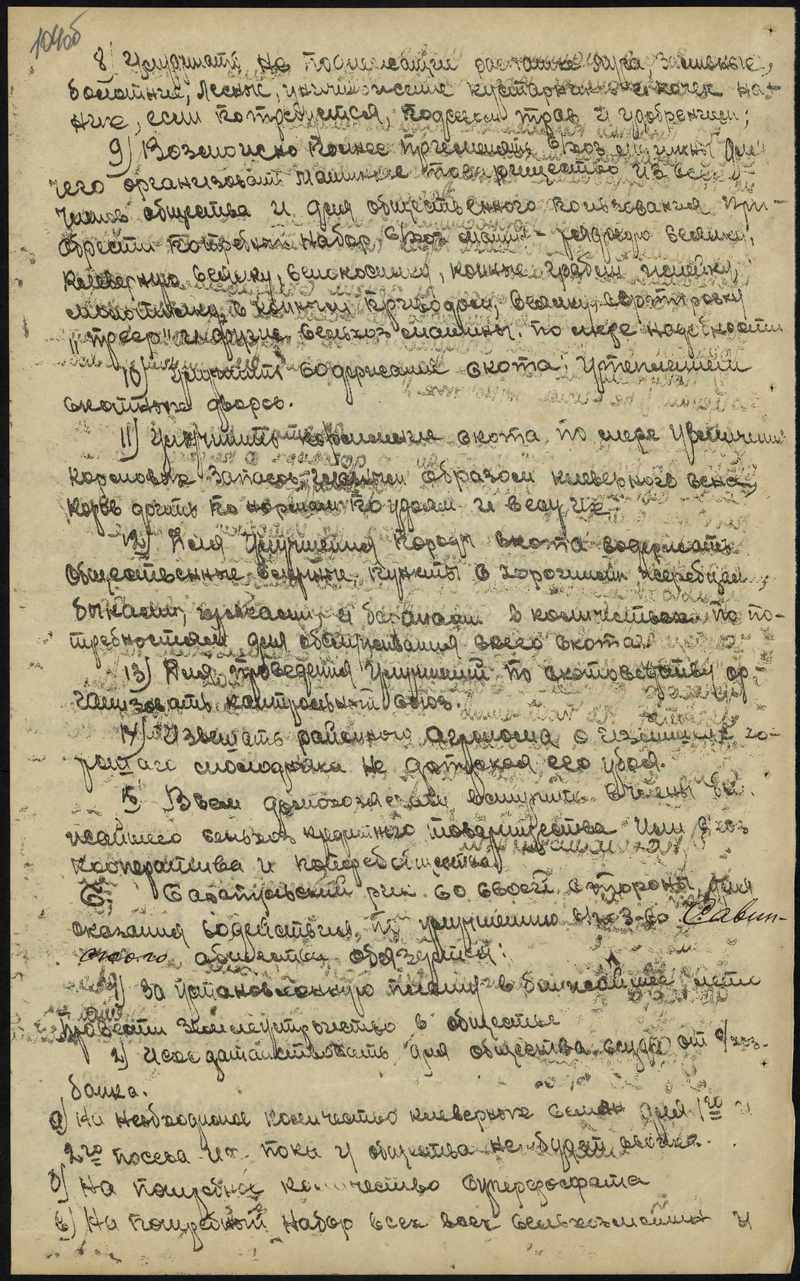 104об
8) Улучшить не поднимающи распашке луга, заливные,
болотные, лесные, уничтожение кустарника и кочек на
них, если потребуется, подсевом трав и удобрением;
9) Возможно полнее применять с/хоз машины для
чего организовать машинное товарищество из всех
членов общества и для общественного пользования при-
обрести потребный набор с/хоз машин - рядовую сеялку,
клеверную сеялку, сенокосилку, конные грабли, жнейку,
молотилка с конным приводом, веялку, сортировку
"триер" и другие сельхоз машины по мере надобности
10) Улучшить содержание скота; утеплением
скотных дворов.
11) Улучшить кормления скота по мере увеличения
кормовых запасов, главным образом клеверного сена,
корм давать по нормам по удоям и весу их.
12) Для улучшения породы скота содержать
общественные случные пункты с хорошими жеребцами,
быками, хряками, и баранами в количествах по по-
требностям для обслуживания всего скота.
13) Для проведения улучшений по скотоводству ор-
ганизовать контрольный союз.
14) Извещать районного агронома о излишних го-
молодняка не допуская его убоя.
15) Всем домохозяевам вступить в члены бли-
жайшего сельхоз кредитного товарищества или с/хоз
кооператива и потребобщества
рик со своей стороны для
оказания содействия по улучшению с/хоз-во Савин-
ского общества обязуется:
1) За установленную плату в ближайшее лето
провести землеустройство в обществе
2) Исходатайствовать для общества ссуды от с/хоз-
банка.
а) На необходимое количество клеверных семян для 1го и
2го посева их пока у общества не будет своих.
б) На потребное количество суперфосфата
в) На потребный набор всех сельхозмашин и